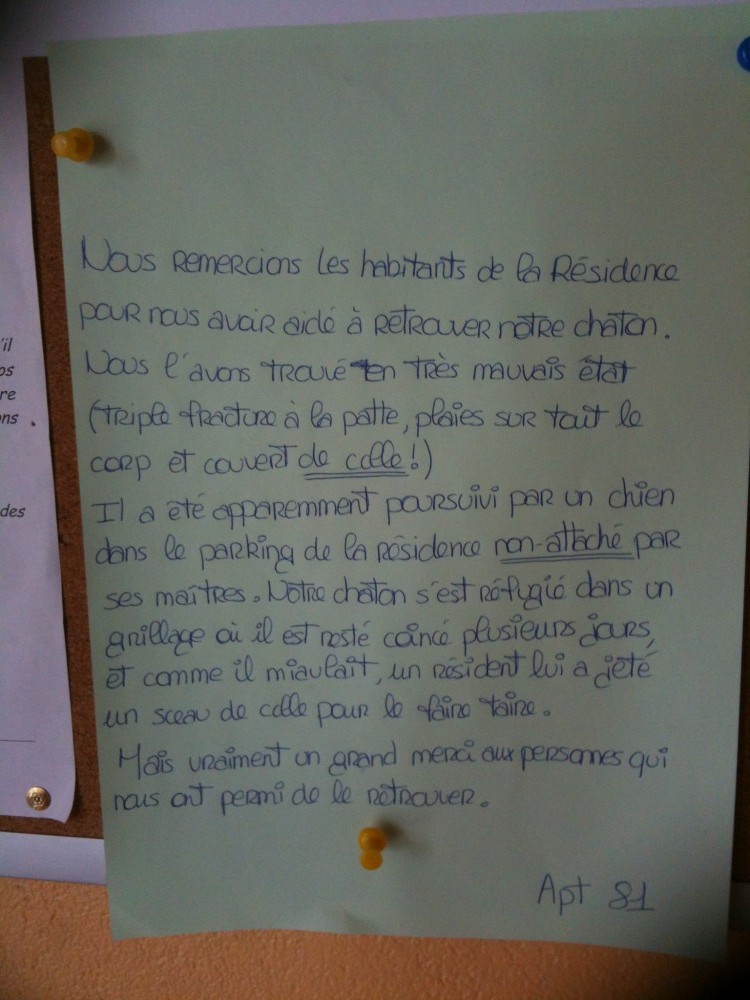 'il
os
re
ns .
des
Nous remercions les habitants de la Résidence
pour nous avoir aidé à retrouver notre chaton.
Nous l'avons trouvé en très mauvais état
(triple fracture à la patte, plaies sur tout le
corp et couvert de colle !)
Il a été apparemment poursuivi par un chien
dans le parking de la résidence non-attaché par
ses maîtres. Notre chaton s'est réfugié dans un
grillage où il est resté coincé plusieurs jours,
et comme il miaulait, un résident lui a jeté
un sceau de colle pour le faire taire.
Mais vraiment un grand merci aux personnes qui
nous ont permi de le retrouver.
Apt 81